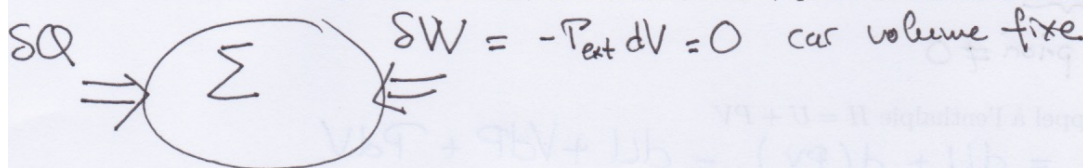 δQ Σ δW = -P_ext dV = 0 car volume fixe